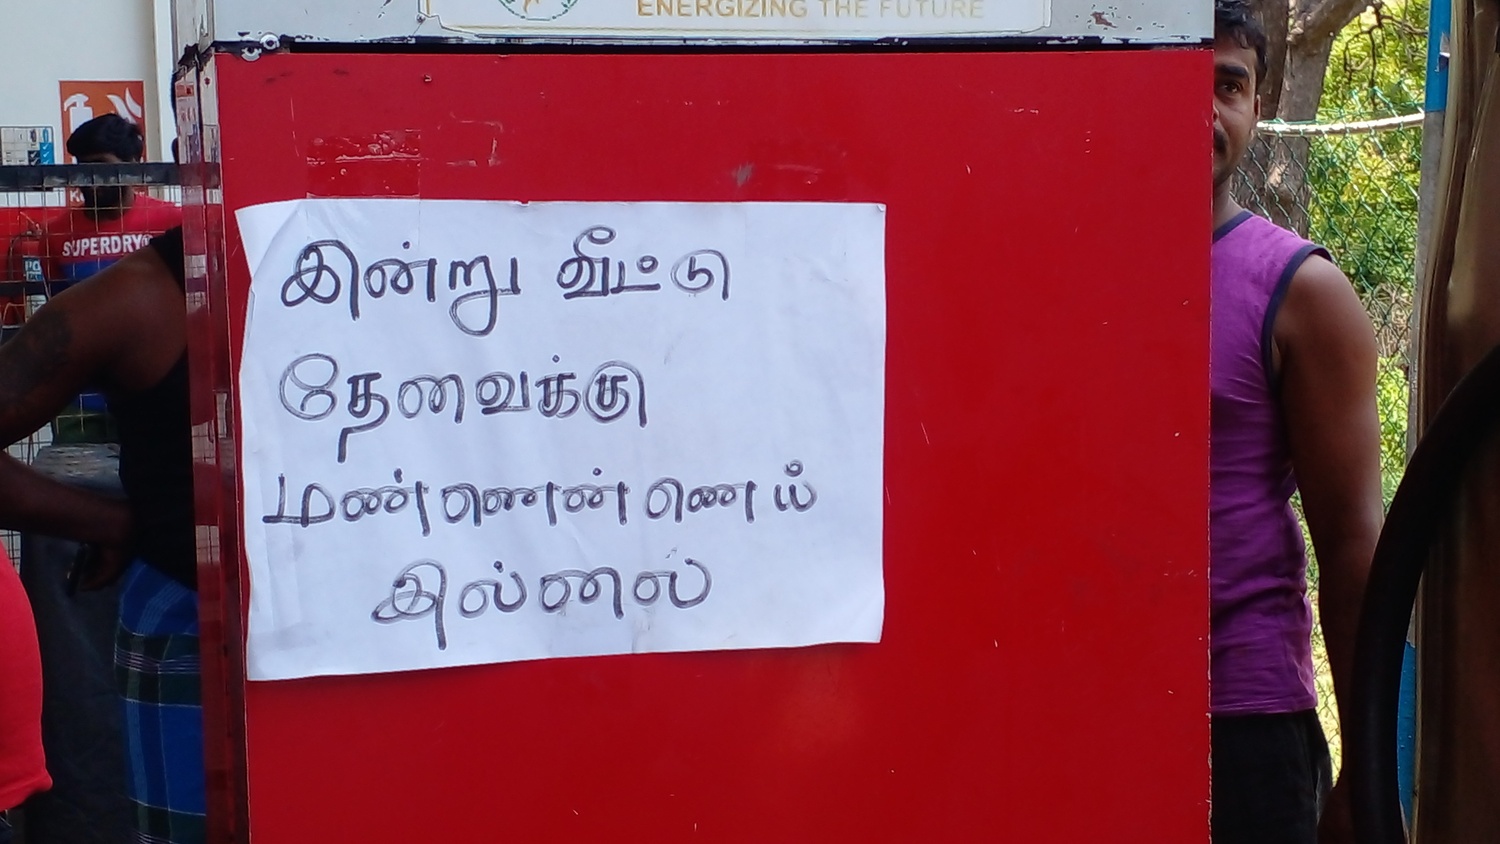 ENERGIZING THE FUTURE
SUPERDRY®
இன்று வீட்டு
தேவைக்கு
மண்ணெண்ணெய்
இல்லை